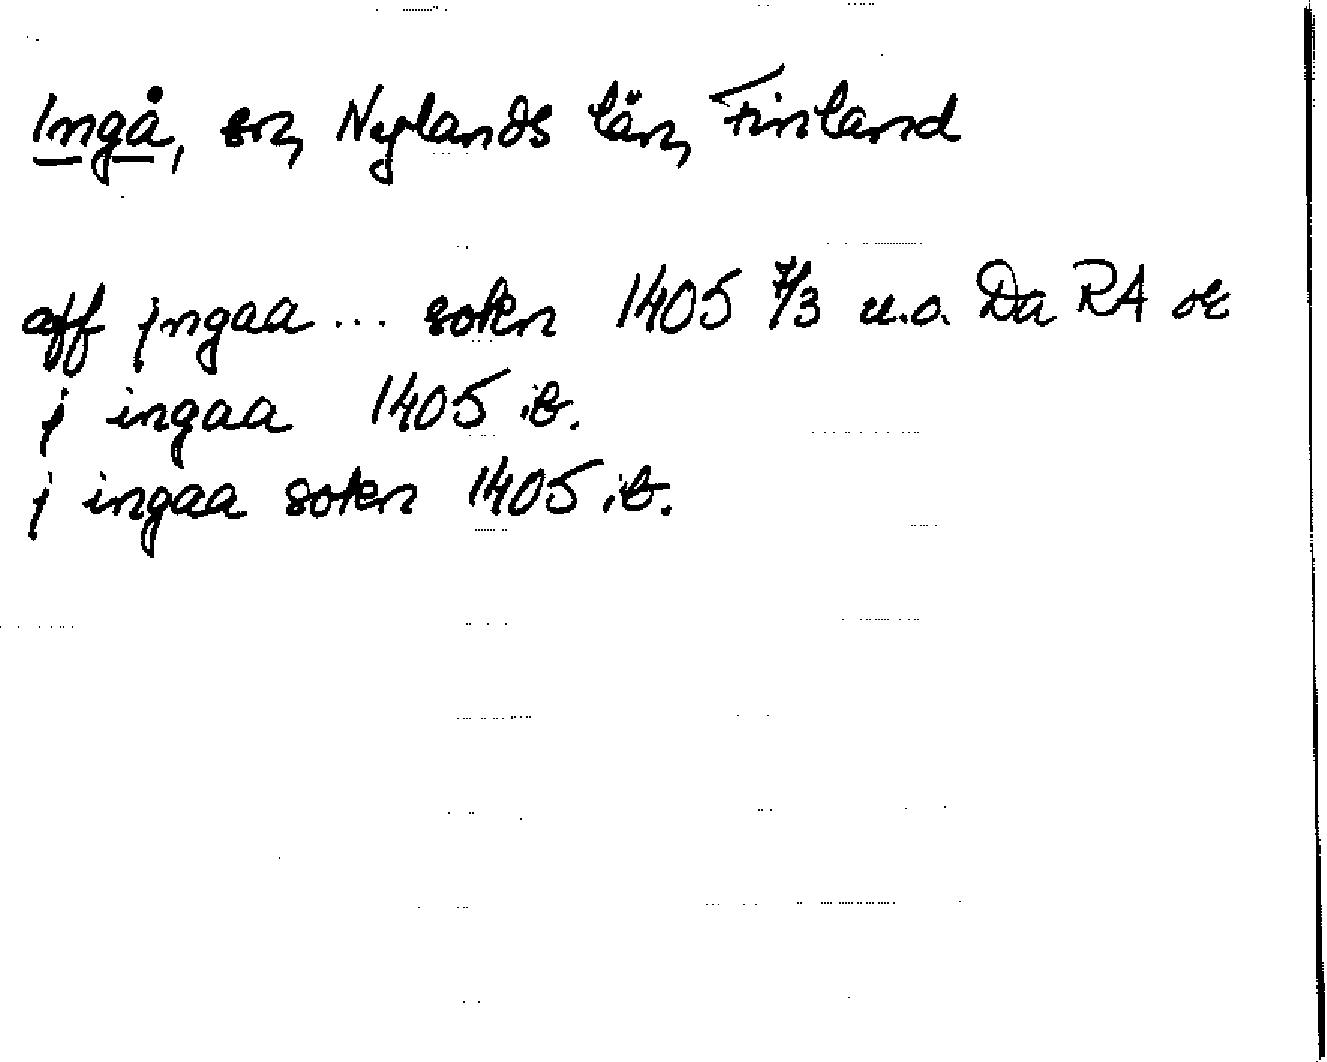 Ingå, sn, Nylands län, Finland
aff jngaa ... sokn 1405 7/3 u.o. Da RA or
j ingaa 1405 ib.
j ingaa sokn 1405 ib.